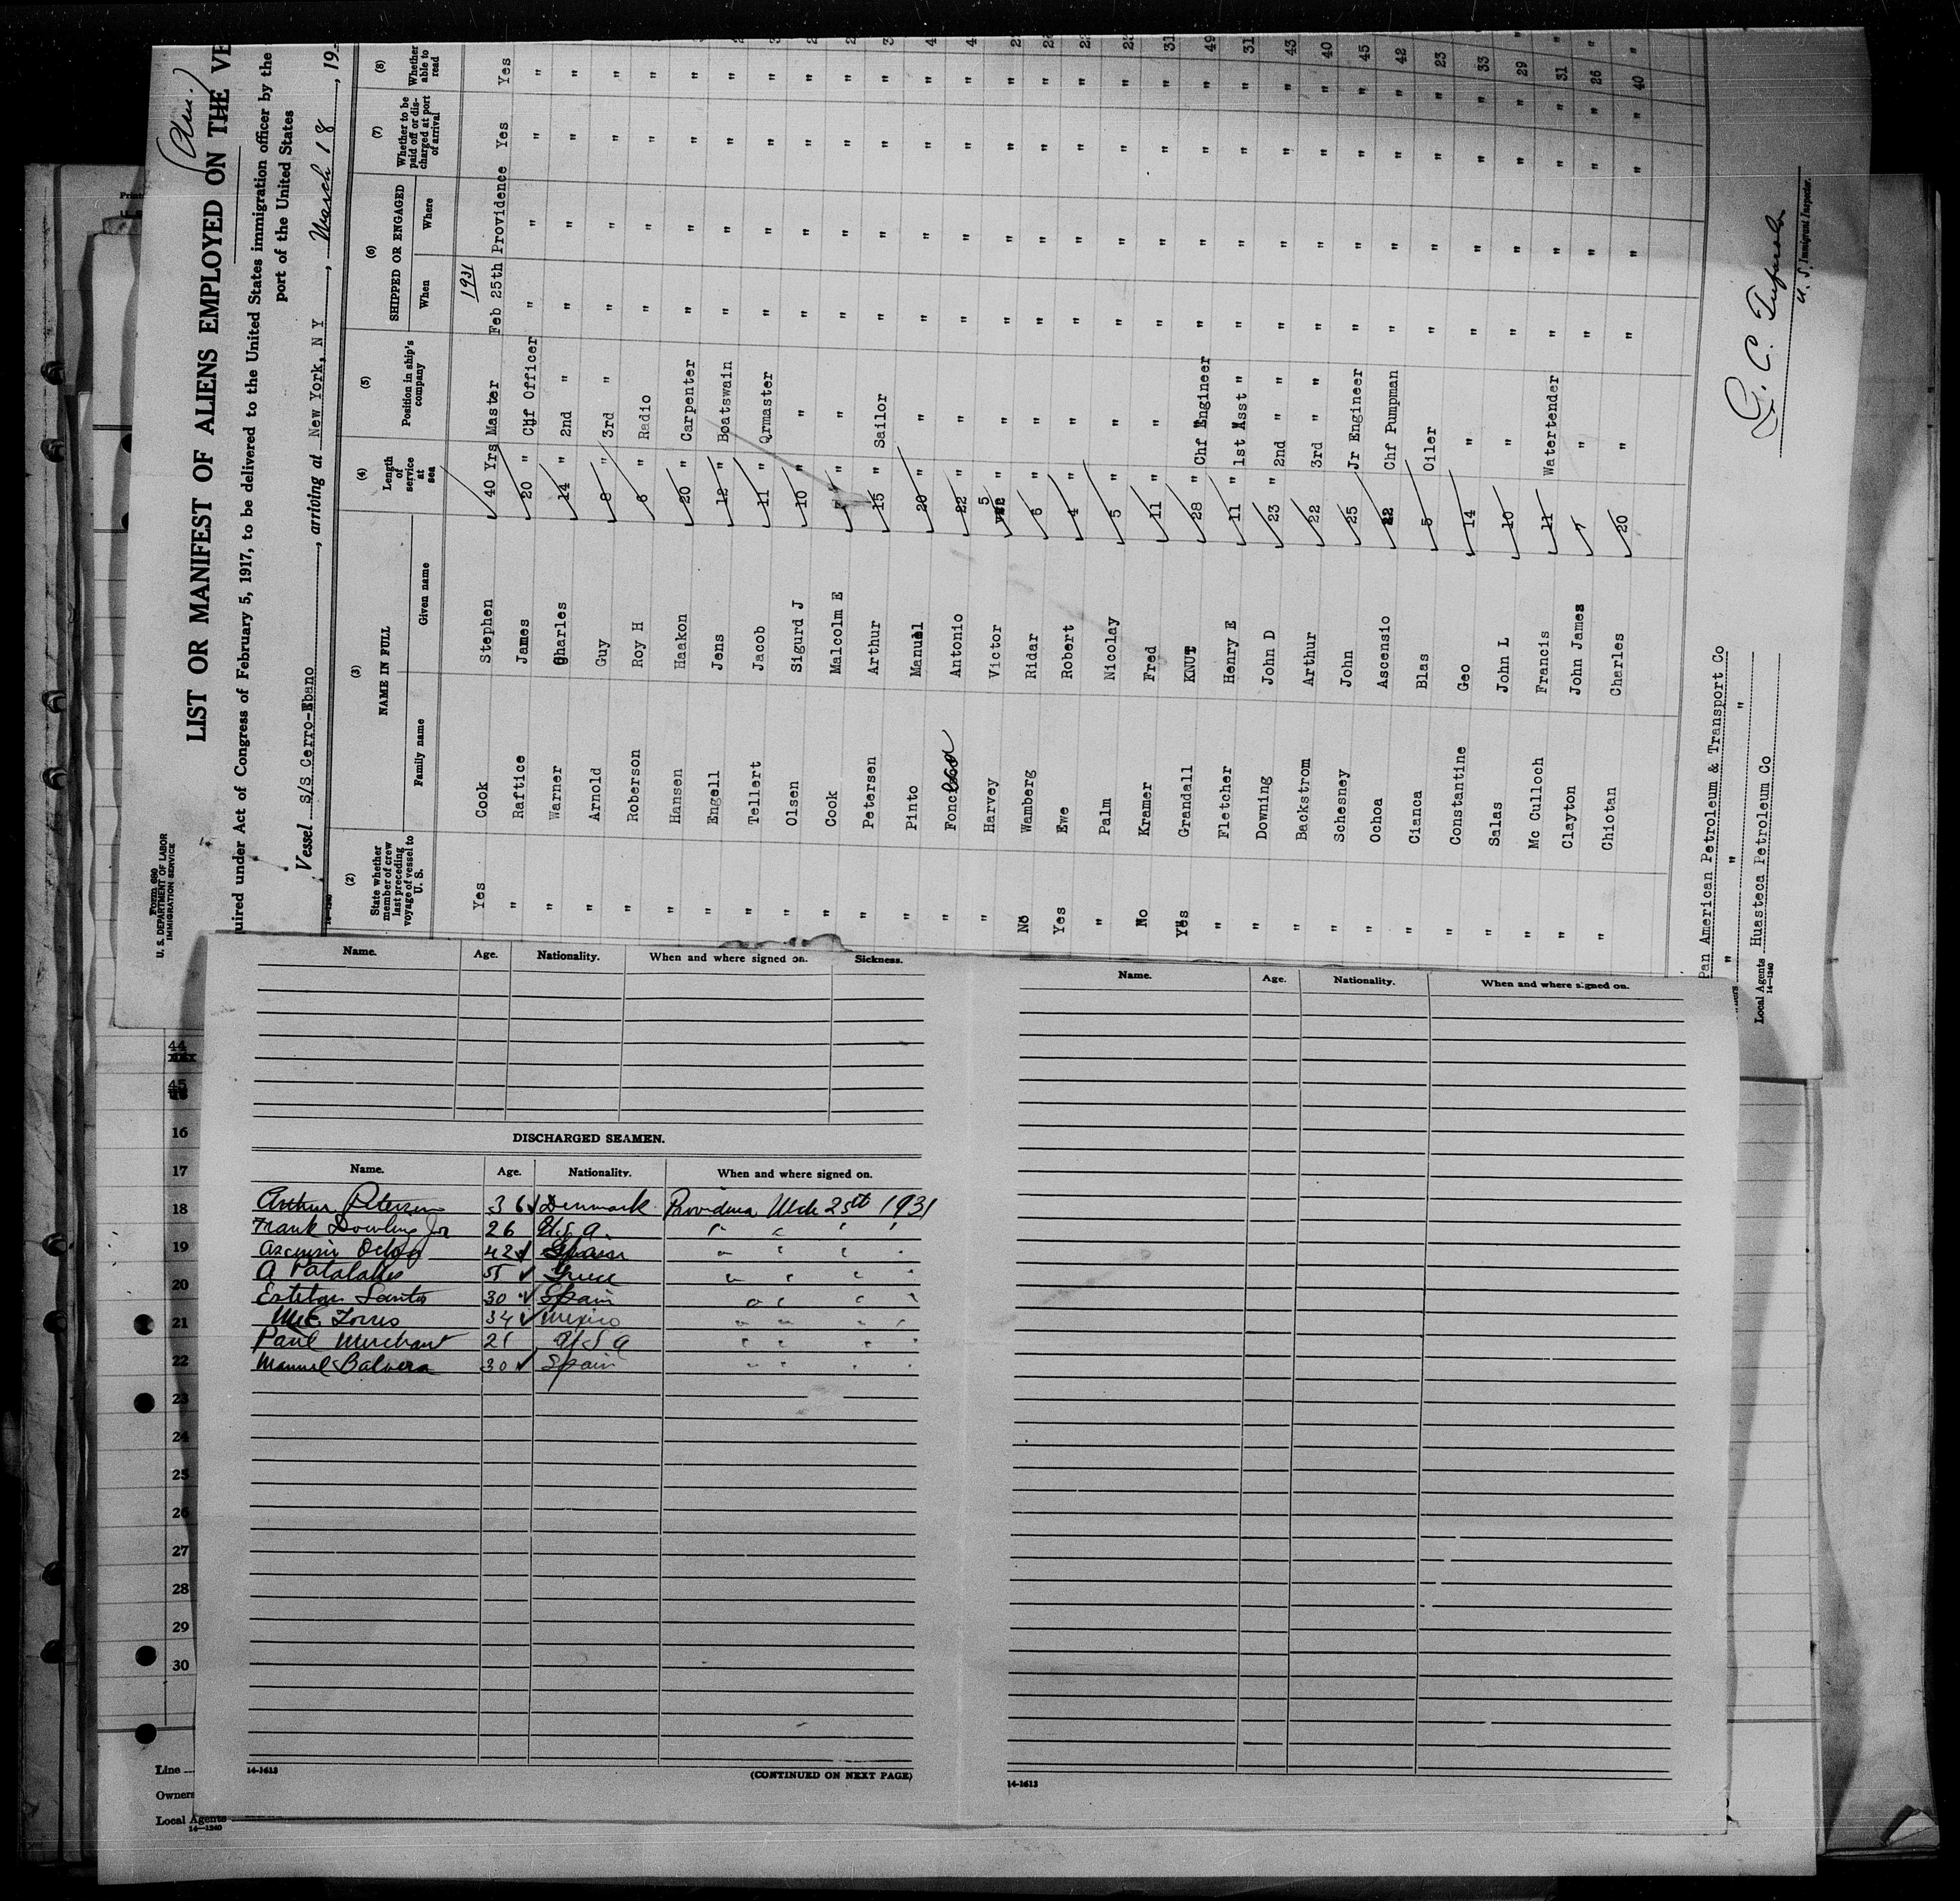 Form 680
U. S. DEPARTMENT OF LABOR
IMMIGRATION SERVICE
(Am.)
LIST OR MANIFEST OF ALIENS EMPLOYED ON THE VE
uired under Act of Congress of February 5, 1917, to be delivered to the United States immigration officer by the
port of the United States
Vessel S/S Cerro-Ebano, arriving at New York, N Y, March 18, 19
(2) (3) (4) (5) (6) (7) (8)
State whether member of crew last preceding voyage of vessel to U. S.
NAME IN FULL
Family name Given name
Length of service at sea
Position in ship's company
SHIPPED OR ENGAGED
When Where
Whether to be paid off or discharged at port of arrival
Whether able to read
1931
Yes Cook Stephen 40 Yrs Master Feb 25th Providence Yes Yes
" Raftice James 20 " Chf Officer " " " "
" Warner Charles 14 " 2nd " " " " "
" Arnold Guy 8 " 3rd " " " " "
" Roberson Roy H 6 " Radio " " " "
" Hansen Haakon 20 " Carpenter " " " "
" Engell Jens 12 " Boatswain " " " "
" Tellert Jacob 11 " Qrmaster " " " "
" Olsen Sigurd J 10 " " " " " "
" Cook Malcolm E " " " " " "
" Petersen Arthur 15 " Sailor " " " "
" Pinto Manuel 20 " " " " " "
" Antonio 22 " " " " " "
" Harvey Victor 5 " " " " " "
No Wamberg Ridar 6 " " " " " "
Yes Ewe Robert 4 " " " " " "
" Palm Nicolay 5 " " " " " "
No Kramer Fred 11 " " " " " " 31
Yes Grandall KNUT 28 " Chf Engineer " " " " 49
" Fletcher Henry E 11 " 1st Asst " " " " " 31
" Downing John D 23 " 2nd " " " " " " 43
" Backstrom Arthur 22 3rd " " " " " " 40
" Schesney John 25 Jr Engineer " " " " 45
" Ochoa Ascensio 22 Chf Pumpman " " " " 42
" Cianca Blas 5 Oiler " " " " 23
" Constantine Geo 14 " " " " " 33
" Salas John L 10 " " " " " 29
" Mc Culloch Francis 11 Watertender " " " " 31
" Clayton John James 7 " " " " " 26
" Chiotan Charles 20 " " " " " 40
Pan American Petroleum & Transport Co
" " "
Local Agents Huasteca Petroleum Co
14-1240
U. S. Immigrant Inspector.
Name. Age. Nationality. When and where signed on. Sickness.
DISCHARGED SEAMEN.
Name. Age. Nationality. When and where signed on.
Arthur Petersen 36 Denmark Providence Mch 25th 1931
Frank Dowling Jr 26 U.S.A. " " " "
Ascensio Ochoa 42 Spain " " " "
A Patalakes 55 Greece " " " "
Esteban Santos 30 Spain " " " "
Torres 34 Mexico " " " "
Paul Merchant 21 U S A " " " "
Manuel Balvera 30 Spain " " " "
14-1613
(CONTINUED ON NEXT PAGE)
Name. Age. Nationality. When and where signed on.
14-1613
44
45
16
17
18
19
20
21
22
23
24
25
26
27
28
29
30
Line
Owners
Local Agents
14-1240